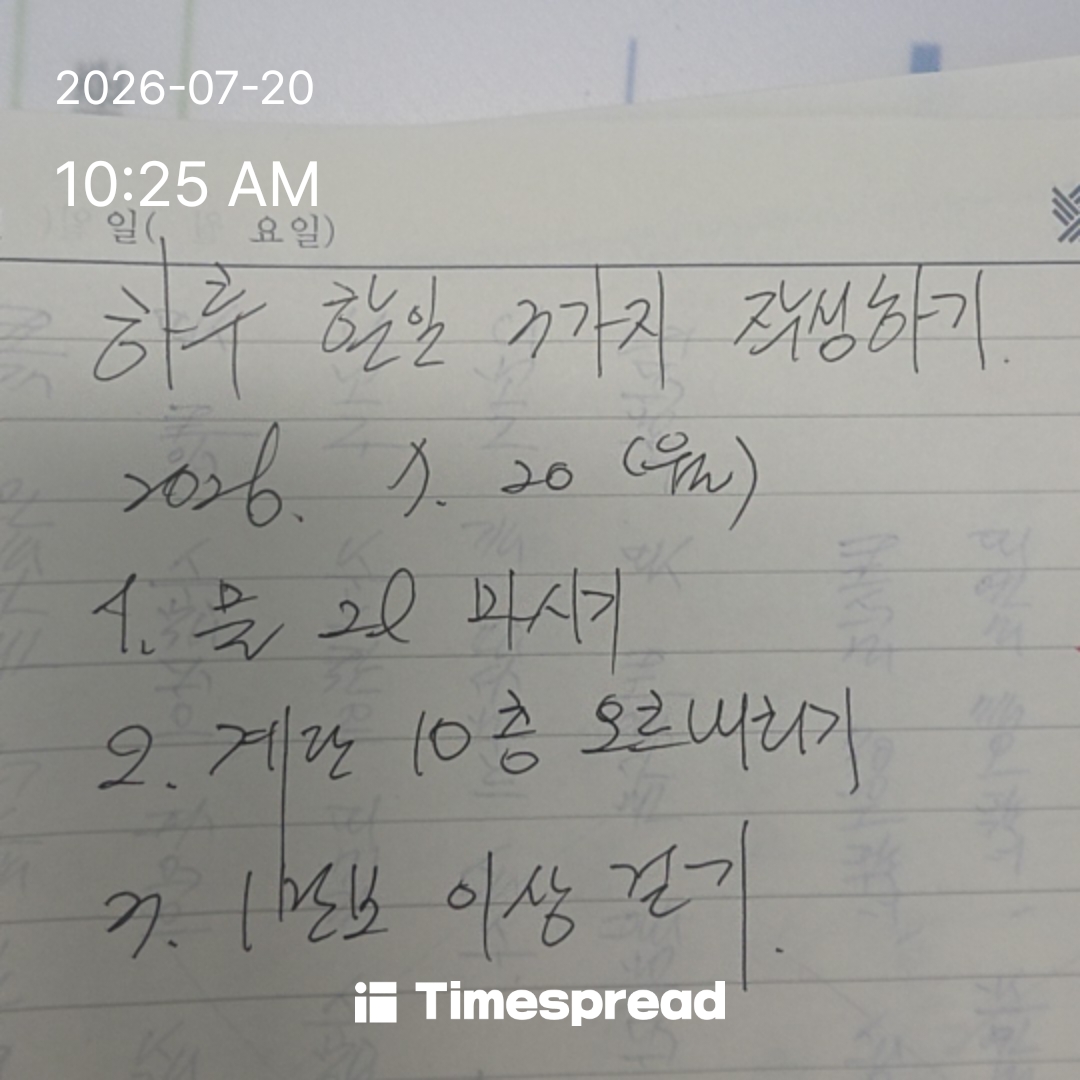 2026-07-20
10:25 AM
일( 요일)
하루 할일 3가지 작성하기.
2026. 7. 20 (월)
1. 물 2l 마시기
2. 계단 10층 오르내리기
3. 1만보 이상 걷기.
Timespread